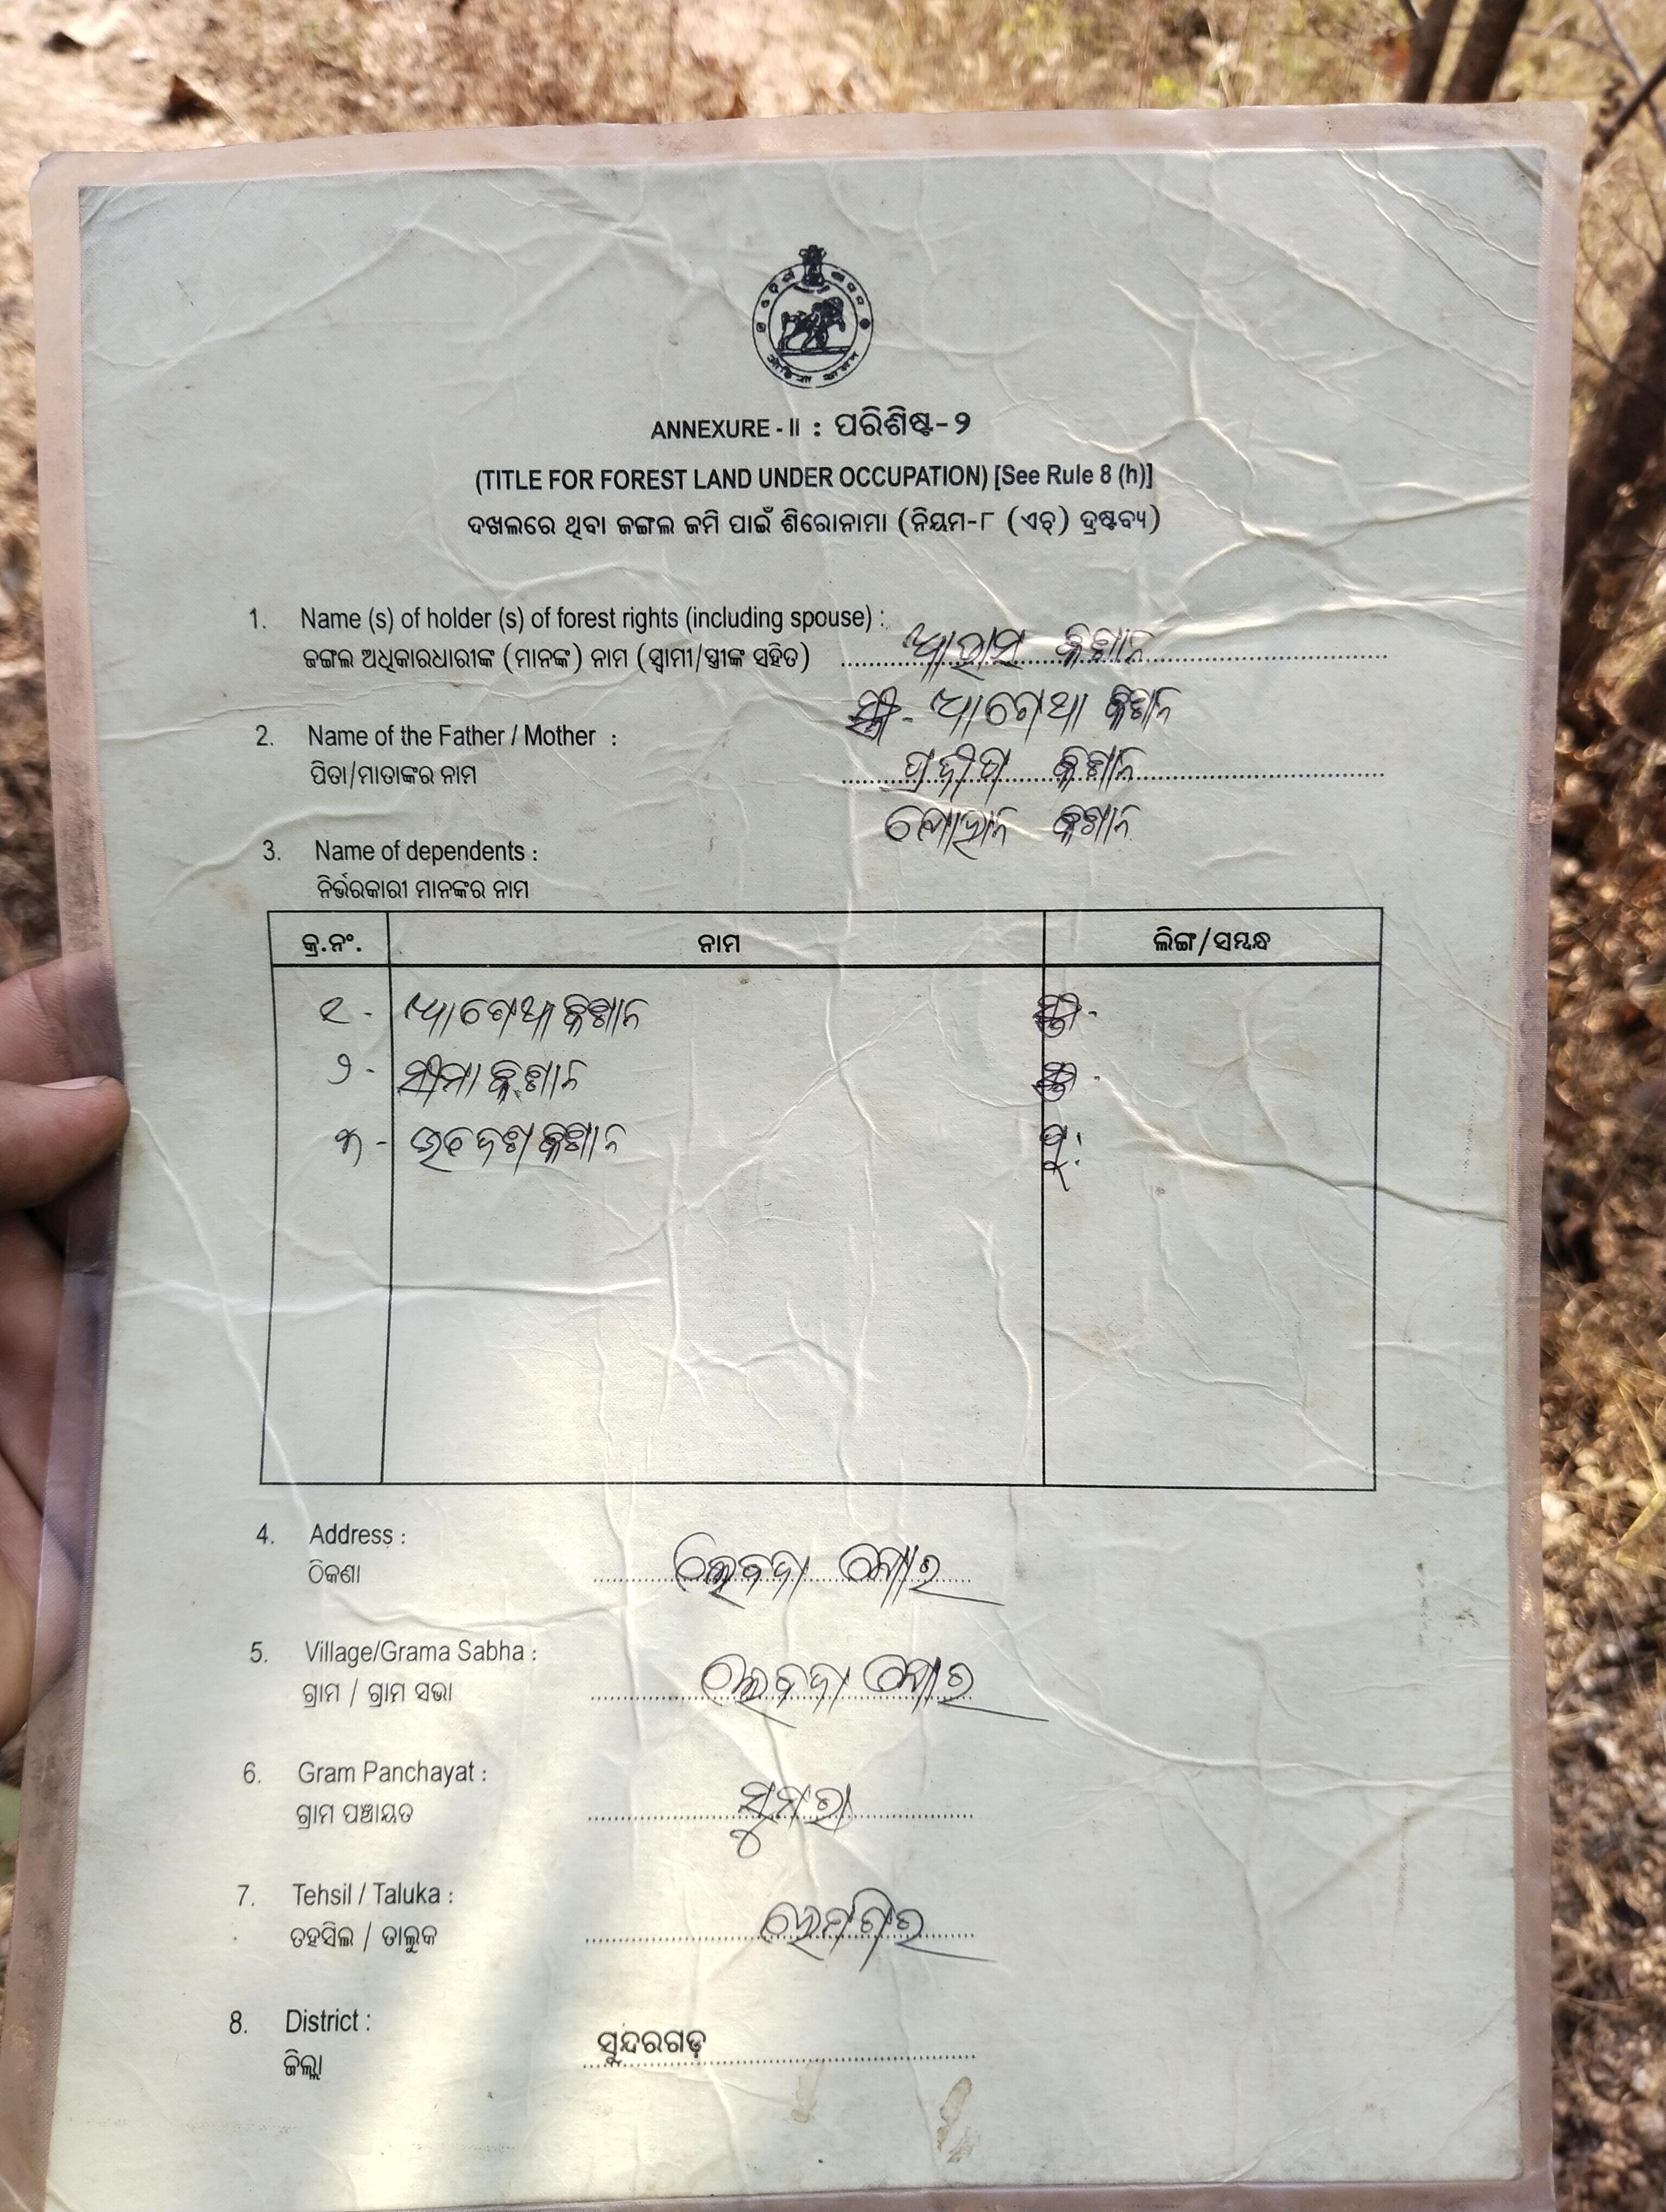 ANNEXURE - II : ପରିଶିଷ୍ଟ-୨
(TITLE FOR FOREST LAND UNDER OCCUPATION) [See Rule 8 (h)]
ଦଖଲରେ ଥିବା ଜଙ୍ଗଲ ଜମି ପାଇଁ ଶିରୋନାମା (ନିୟମ-୮ (ଏଚ୍) ଦ୍ରଷ୍ଟବ୍ୟ)
1. Name (s) of holder (s) of forest rights (including spouse) :
ଜଙ୍ଗଲ ଅଧିକାରଧାରୀଙ୍କ (ମାନଙ୍କ) ନାମ (ସ୍ୱାମୀ/ସ୍ତ୍ରୀଙ୍କ ସହିତ) କିଷାନ
ସ୍ତ୍ରୀ- ଆଗେଥା କିଷାନ
2. Name of the Father / Mother :
ପିତା/ମାତାଙ୍କର ନାମ କିଷାନ
3. Name of dependents :
ନିର୍ଭରକାରୀ ମାନଙ୍କର ନାମ
କ୍ର.ନଂ. ନାମ ଲିଙ୍ଗ/ସମ୍ବନ୍ଧ
୧- ଆଗେଥା କିଷାନ ସ୍ତ୍ରୀ-
୨- ସୀମା କିଷାନ ସ୍ତ୍ରୀ-
୩- କିଷାନ ପୁ:
4. Address :
ଠିକଣା
5. Village/Grama Sabha :
ଗ୍ରାମ / ଗ୍ରାମ ସଭା
6. Gram Panchayat :
ଗ୍ରାମ ପଞ୍ଚାୟତ ସୁମରା
7. Tehsil / Taluka :
ତହସିଲ / ତାଲୁକ ହେମଗିର
8. District :
ଜିଲ୍ଲା ସୁନ୍ଦରଗଡ଼